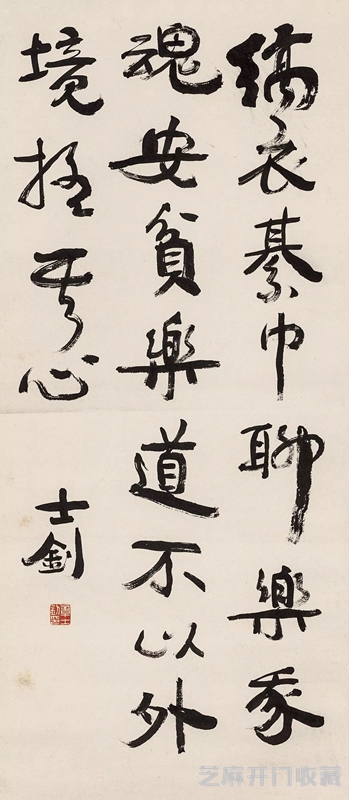 縞衣綦巾聊樂我
魂安貧樂道不以外
境其心
士釗
芝麻开门收藏